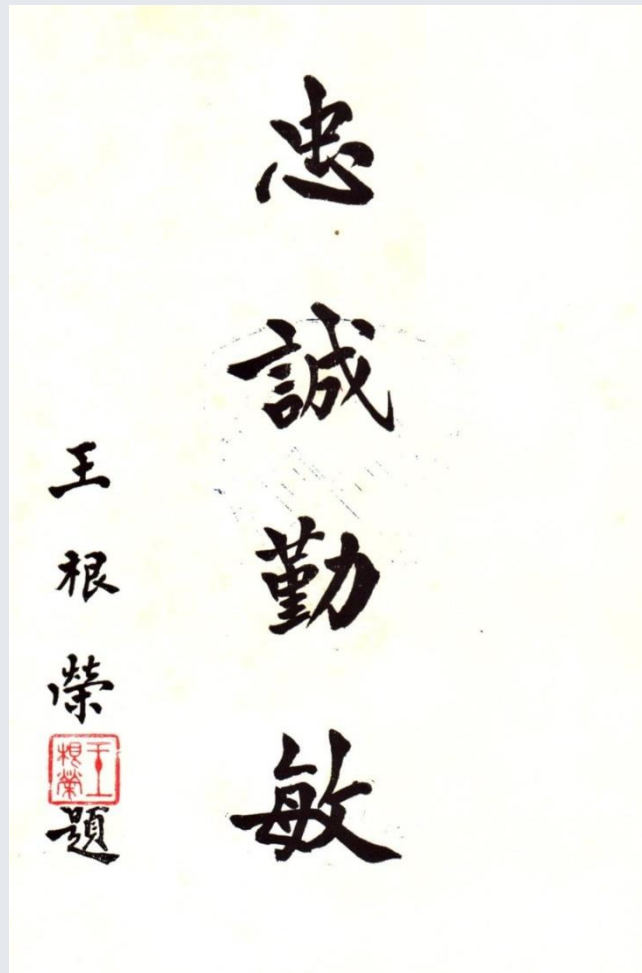 忠誠勤敏
王根榮題
王根榮